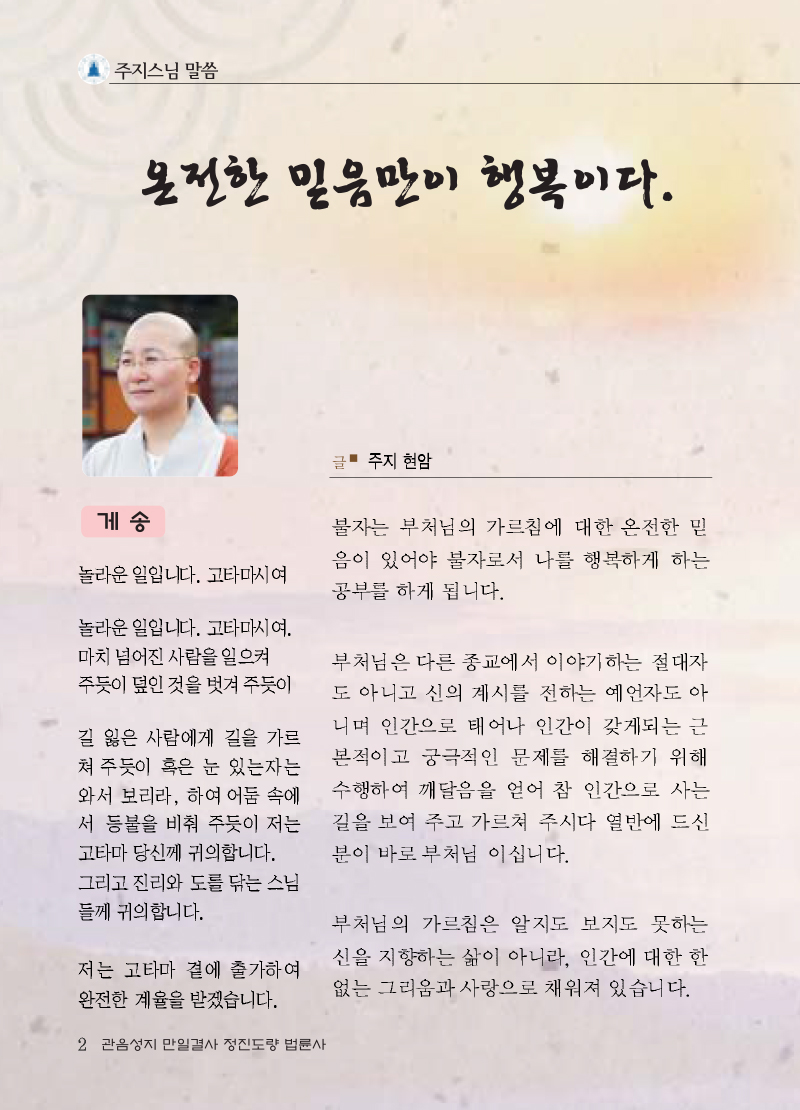 주지스님 말씀
온전한 믿음만이 행복이다.
게 송
놀라운 일입니다. 고타마시여
놀라운 일입니다. 고타마시여.
마치 넘어진 사람을 일으켜
주듯이 덮인 것을 벗겨 주듯이
길 잃은 사람에게 길을 가르
쳐 주듯이 혹은 눈 있는자는
와서 보리라, 하여 어둠 속에
서 등불을 비춰 주듯이 저는
고타마 당신께 귀의합니다.
그리고 진리와 도를 닦는 스님
들께 귀의합니다.
저는 고타마 곁에 출가하여
완전한 계율을 받겠습니다.
글■ 주지 현암
불자는 부처님의 가르침에 대한 온전한 믿
음이 있어야 불자로서 나를 행복하게 하는
공부를 하게 됩니다.
부처님은 다른 종교에서 이야기하는 절대자
도 아니고 신의 계시를 전하는 예언자도 아
니며 인간으로 태어나 인간이 갖게되는 근
본적이고 궁극적인 문제를 해결하기 위해
수행하여 깨달음을 얻어 참 인간으로 사는
길을 보여 주고 가르쳐 주시다 열반에 드신
분이 바로 부처님 이십니다.
부처님의 가르침은 알지도 보지도 못하는
신을 지향하는 삶이 아니라, 인간에 대한 한
없는 그리움과 사랑으로 채워져 있습니다.
2 관음성지 만일결사 정진도량 법륜사